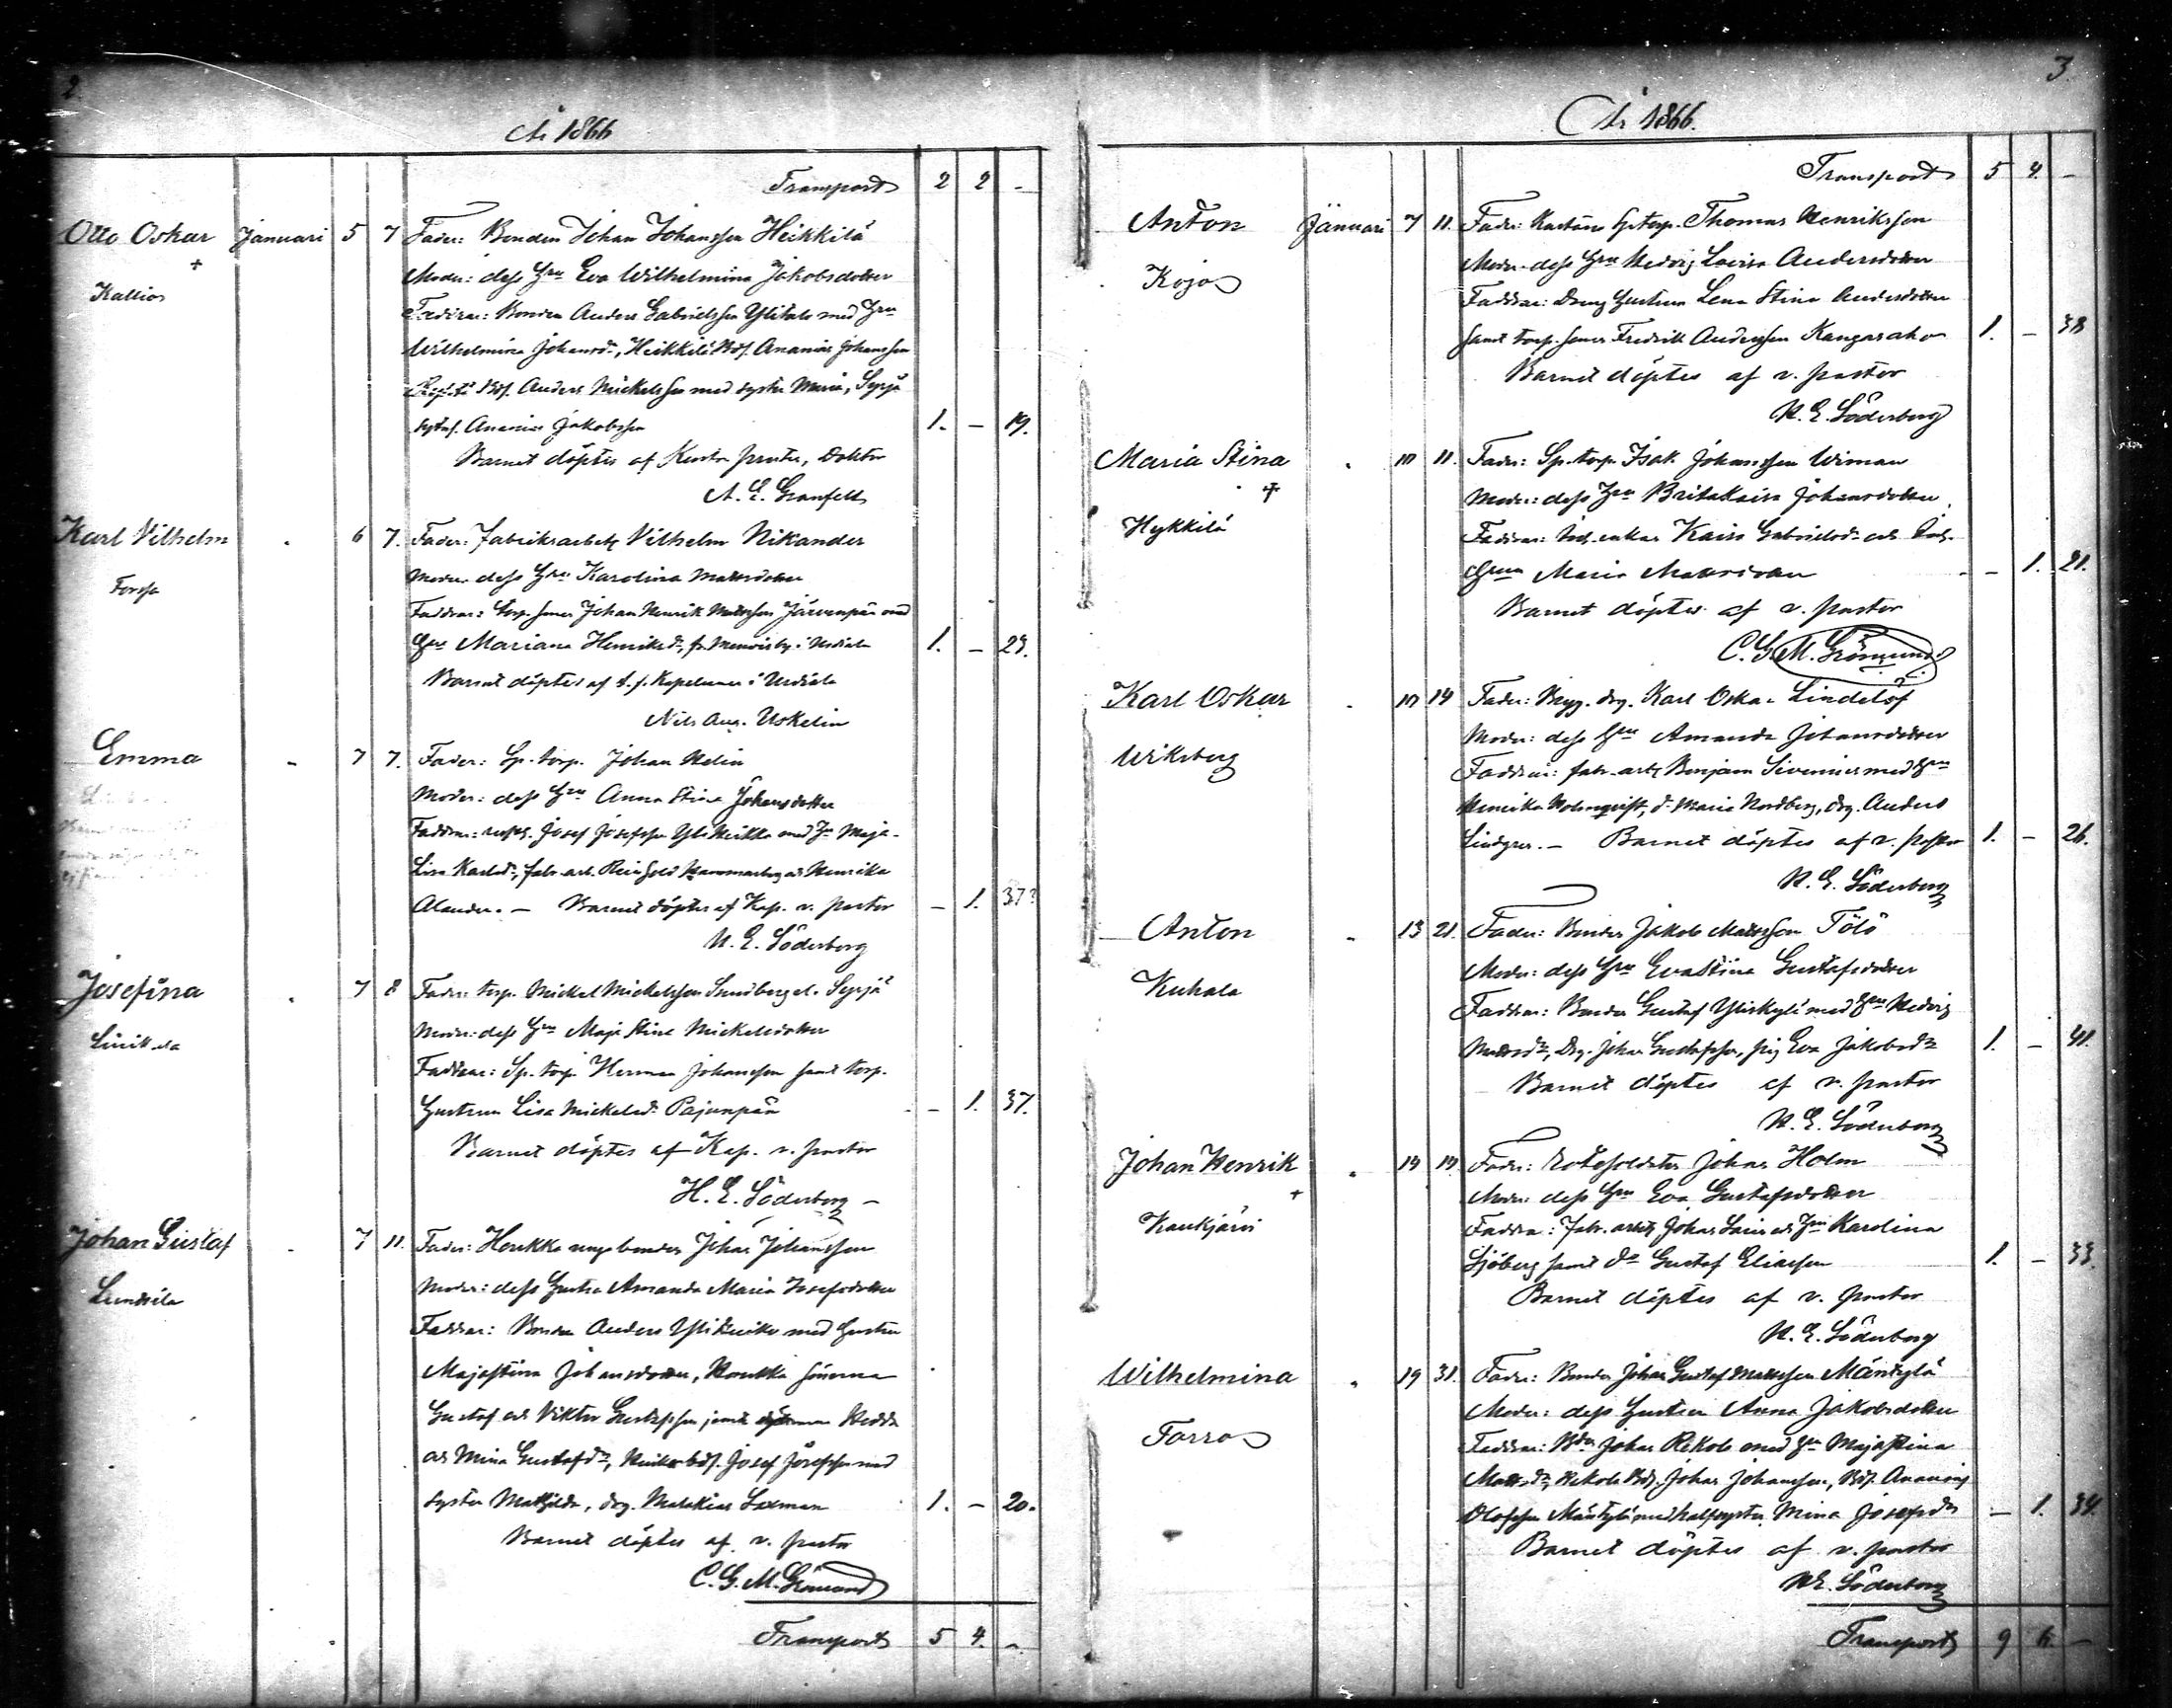 2.
År 1866
Transport 2 2 -
Otto Oskar Januari 5 7 Fader: Bonden Johan Johansson Heikkilä
Kallio
Moder: dess Hru Eva Wilhelmina Jakobsdotter
Faddrar: Bonden Anders Gabrielsson Ylitalo med Hru
Wilhelmina Johansdr, Heikkilä Bds. Ananias Johansson
Bds. Anders Mickelsson med syster Maria, Syrjä
Ananias Jakobsson 1. - 19.
Barnet döptes af Doktor
A. E. Granfelt
Karl Vilhelm 6 7. Fader: fabriksarbet. Vilhelm Nikander
Forssa
Moder dess Hru Karolina Mattsdotter
Faddrar: torp. sonen Johan Henrik Mattsson Järvenpää med
Hru Mariana Henriksdr, fr. by i Urdiala 1. - 23.
Barnet döptes af Kapellanen i Urdiala
Nils Aug. Uskelin
Emma - 7 7. Fader: Sp. torp. Johan Helin
Moder: dess Hru Anna Stina Johansdotter
Faddrar: Josef Josefsson Yli Heikka med Hr Maja-
Lisa Karlsdr, fabr. arb. Reinhold Hammarberg och Henrika
Alander. - Barnet döptes af Kap. v. pastor - 1. 37?
H. E. Söderberg
Josefina 7 8 Fader: torp. Mickel Mickelsson Sundberg el. Syrjä
Moder: dess Hru Maja Stina Mickelsdotter
Faddrar: Sp. torp. Herman Johansson samt torp.
Hustrun Lisa Mickelsdr Pajunpää - 1. 37.
Barnet döptes af Kap. v. pastor
H. E. Söderberg -
Johan Gustaf 7 11. Fader: Honkka unge bonden Johan Johansson
Lunttila
Moder: dess Hustru Amanda Maria Josefsdotter
Faddrar: Bonden Anders med Hustru
Majastina Johansdotter, Honkka sönerna
Gustaf och Viktor Gustafsson jemte Hedda
och Mina Gustafsdr, Josef Josefsson med
syster Mathilda, drg. Malakias Laxman 1. - 20.
Barnet döptes af v. pastor
C. G. M. Grönmund
Transport 5 4. -
3.
År 1866.
Transport 5 4. -
Anton Januari 7 11. Fader: Thomas Henriksson
Kojo
Moder dess Hru Hedvig Lovisa Andersdotter
Faddrar: Dreng Hustrun Lena Stina Andersdotter
samt torp. sonen Fredrik Andersson Kangasaho 1. - 38
Barnet döptes af v. pastor
H. E. Söderberg
Maria Stina 10 11. Fader: Sp. torp. Isak Johansson Wiman
Hykkilä
Moder: dess Hru Britakaisa Johansdotter
Faddrar: inh. enkan Kaisa Gabrielsdr och Inh.
Hrun Maria - 1. 21.
Barnet döptes af v. pastor
C. G. M. Grönmund
Karl Oskar 10 14 Fader: drg. Karl Oskar Lindelöf
Wiksberg
Moder: dess Hru Amanda Johansdotter
Faddrar: fabr. arb. Benjam Sivenius med Hru
Henrika Holmqvist, d. Maria Nordberg, drg. Anders
Lindgren. - Barnet döptes af v. pastor 1. - 26.
H. E. Söderberg
Anton 13 21. Fader: Bonden Jakob Mattsson Tölö
Kuhala
Moder: dess Hru Evastina Gustafsdotter
Faddrar: Bonden Gustaf Yliskylä med Hru Hedvig
Mattsdr, Drg. Johan Gustafsson, pig. Eva Jakobsdr 1. - 41.
Barnet döptes af v. pastor
H. E. Söderberg
Johan Henrik 14 14. Fader: Rotesoldaten Johan Holm
Kaukjärvi
Moder dess Hru Eva Gustafsdotter
Faddrar: fabr. arbet. Johan och Hru Karolina
Sjöberg samt dr Gustaf Eliasson 1. - 33.
Barnet döptes af v. pastor
H. E. Söderberg
Wilhelmina 19 31. Fader: Bonden Johan Gustaf Mattsson Mäntylä
Torro
Moder: dess Hustru Anna Jakobsdotter
Faddrar: Bdn Johan Rekola med Hru Majastina
Mattsdr, Rekola Bds. Johan Johansson, Bds. Ananias
Olofsson Mäntylä med halfsyster Mina Josefsdr - 1. 34.
Barnet döptes af v. pastor
H. E. Söderberg
Transport 9 6 -